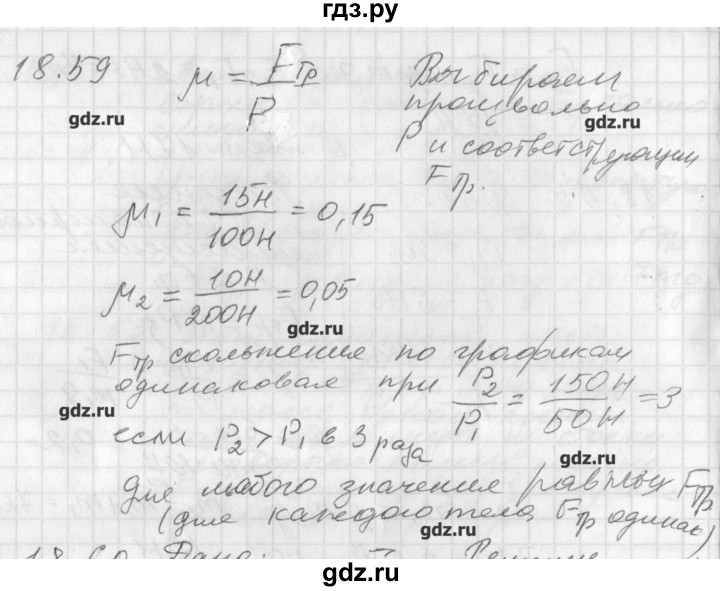 гдз.ру
18.59 μ = Fтр / P Выбираем
произвольно
gdz.ru gdz.ru
P и соответствующий
Fтр.
μ₁ = 15Н / 100Н = 0,15
μ₂ = 10Н / 200Н = 0,05
gdz.ru
Fтр скольжения по графикам
одинаковая при P₂ / P₁ = 150Н / 50Н = 3
gdz.ru
если P₂ > P₁ в 3 раза
gdz.ru
Для любого значения равных Fтр
(для каждого тела Fтр одинак)
gdz.ru
18.60 Дано: Решение
gdz.ru